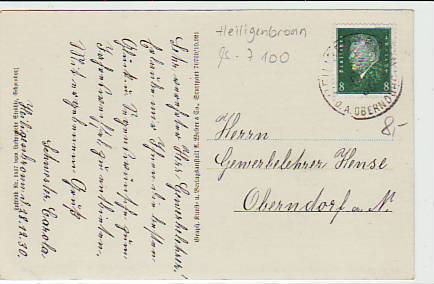 Heiligenbronn
7 100
8 8
O.A. OBERNDORF
8,-
Herrn
Gewerbelehrer Hense
Oberndorf a. N.
Sehr geehrter Herr Gewerbelehrer!
Erlaube mir Ihnen die besten
Glück- u. Segenswünsche zum
Jahreswechsel zu entbieten.
Mit ergebenem Gruß
Schwester Carola
Heiligenbronn d. 28.12.30.